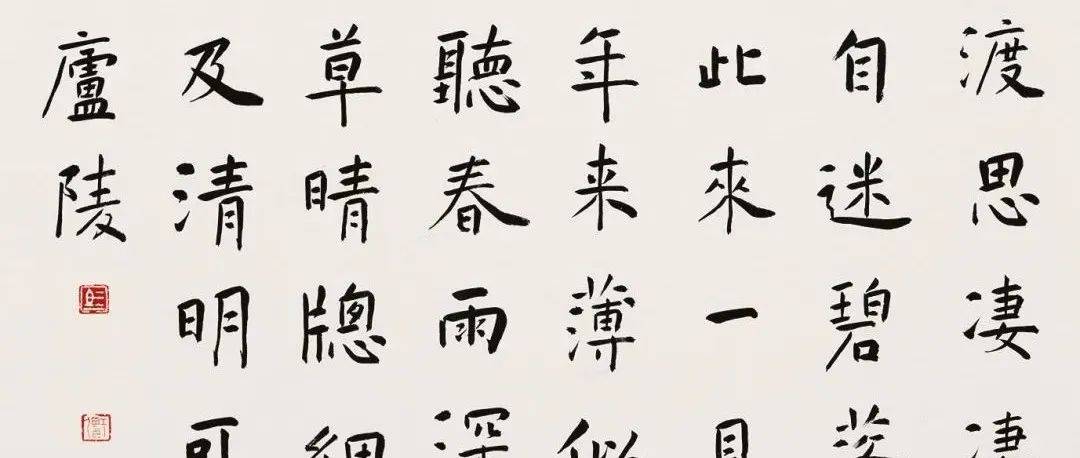 渡思凄凄
自迷碧
此來一
年来薄似
聽春雨深
草晴牕細
及清明可
廬陵